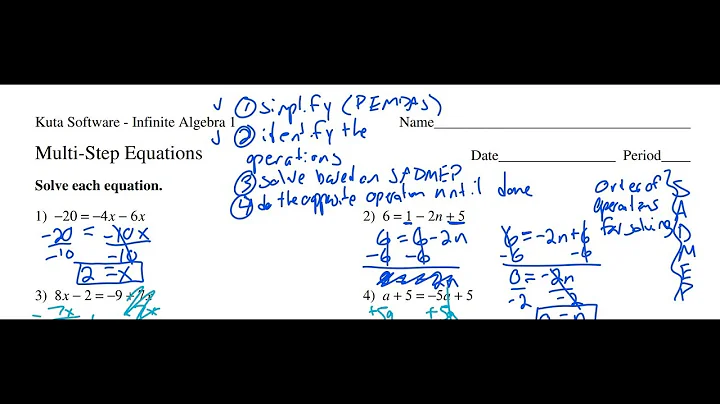 ① simplify (PEMDAS)
Kuta Software - Infinite Algebra 1
Name
② identify the
operations
Multi-Step Equations
Date Period
③ solve based on SADMEP
④ do the opposite operation until done
Solve each equation.
Order of
operations
for solving
SADMEP
1) −20 = −4x − 6x
-20 = -10x
-10 -10
2 = x
2) 6 = 1 − 2n + 5
6 = 6 - 2n
-6 -6
6 = -2n + 6
-6 -6
0 = -2n
-2 -2
3) 8x − 2 = −9 +
4) a + 5 = −5a + 5
+5a +5a